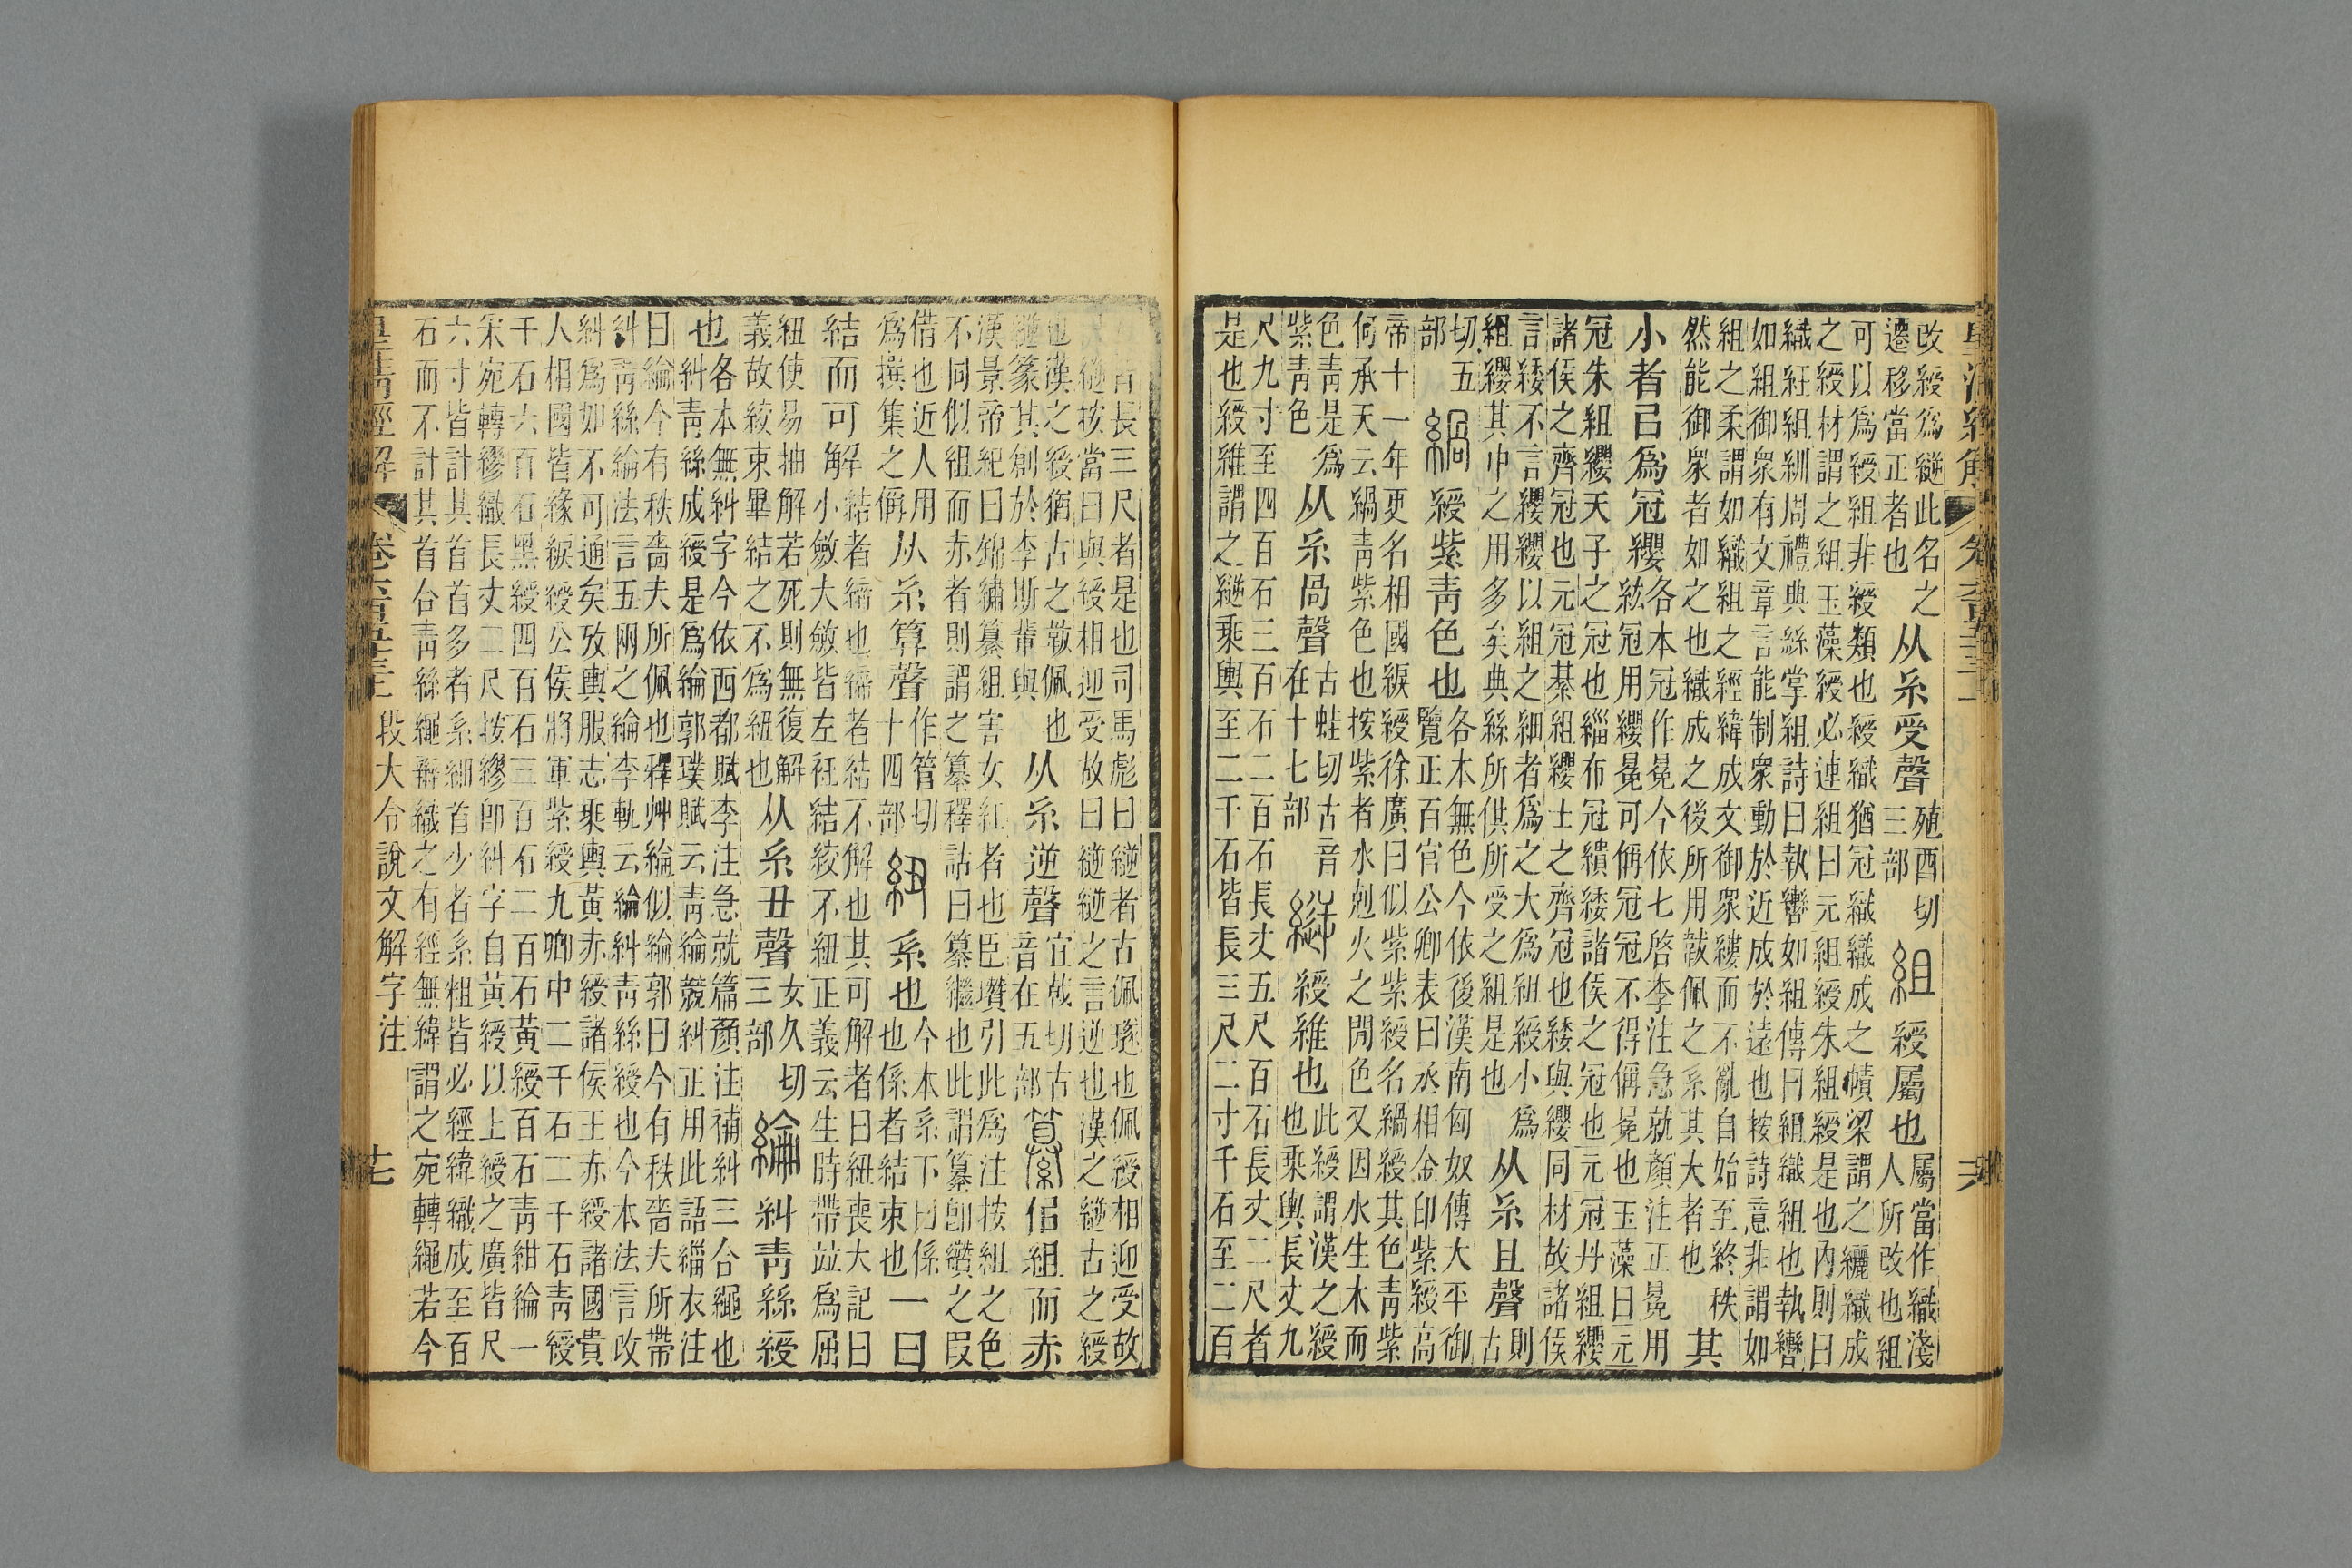 皇清經解
改綬爲縌此名之
遷移當正者也
从糸受聲
殖酉切
三部
組
綬屬也
屬當作織淺
人所改也組
可以爲綬組非綬類也綬織猶冠織織成之幘梁謂之纚織成
之綬材謂之組玉藻綬必連組曰元組綬朱組綬是也內則曰
織紝組紃周禮典絲掌組詩曰執轡如組傳曰組織組也執轡
如組御衆有文章言能制衆動於近成於遠也按詩意非謂如
組之柔謂如織組之經緯成文御衆縷而不亂自始至終秩
然能御衆者如之也織成之後所用韍佩之系其大者也
其
小者㠯爲冠纓
各本冠作冕今依七啓李注急就顏注正冕用
紘冠用纓冕可偁冠冠不得偁冕也玉藻曰元
冠朱組纓天子之冠也緇布冠繢緌諸侯之冠也元冠丹組纓
諸侯之齊冠也元冠綦組纓士之齊冠也緌與纓同材故諸侯
言緌不言纓纓以組之細者爲之大爲組綬小爲
組纓其中之用多矣典絲所供所受之組是也
从糸且聲
則
古
切五
部
緺
綬紫青色也
各本無色今依後漢南匈奴傳大平御
覽正百官公卿表曰丞相金印紫綬高
帝十一年更名相國綟綬徐廣曰似紫紫綬名緺綬其色青紫
何承天云緺青紫色也按紫者水剋火之閒色又因水生木而
色青是爲
紫青色
从糸咼聲
古蛙切古音
在十七部
縌
綬維也
此綬謂漢之綬
也乘輿長丈九
尺九寸至四百石三百石二百石長丈五尺百石長丈二尺者
是也綬維謂之縌乘輿至二千石皆長三尺二寸千石至二百
石皆長三尺者是也司馬彪曰縌者古佩璲也佩綬相迎受故
曰縌按當曰與綬相迎受故曰縌縌之言逆也漢之縌古之綬
也漢之綬猶古之韍佩也
縌篆其創於李斯輩與
从糸逆聲
宜戟切古
音在五部
纂
佀組而赤
漢景帝紀曰錦繡纂組害女紅者也臣瓚引此爲注按組之色
不同似組而赤者則謂之纂釋詁曰纂繼也此謂纂卽纘之叚
借也近人用
爲撰集之偁
从糸算聲
作管切
十四部
紐
系也
今本系下曰係
也係者結束也
一曰
結而可解
結者締也締者結不解也其可解者曰紐喪大記曰
小斂大斂皆左衽結絞不紐正義云生時帶竝爲屈
紐使易抽解若死則無復解
義故絞束畢結之不爲紐也
从糸丑聲
女久切
三部
綸
糾青絲綬
也
各本無糾字今依西都賦李注急就篇顏注補糾三合繩也
糾青絲成綬是爲綸郭璞賦云青綸競糾正用此語緇衣注
曰綸今有秩嗇夫所佩也釋艸綸似綸郭曰今有秩嗇夫所帶
糾青絲綸法言五兩之綸李軌云綸糾青絲綬也今本法言改
糾爲如不可通矣攷輿服志乘輿黃赤綬諸侯王赤綬諸國貴
人相國皆緣綟綬公侯將軍紫綬九卿中二千石二千石青綬
千石六百石黑綬四百石三百石二百石黃綬百石青紺綸一
宋宛轉繆織長丈二尺按繆卽糾字自黃綬以上綬之廣皆尺
六寸皆計其首首多者系細首少者系粗皆必經緯織成至百
石而不計其首合青絲繩辮織之有經無緯謂之宛轉繩若今
皇清經解
段大令說文解字注
十七